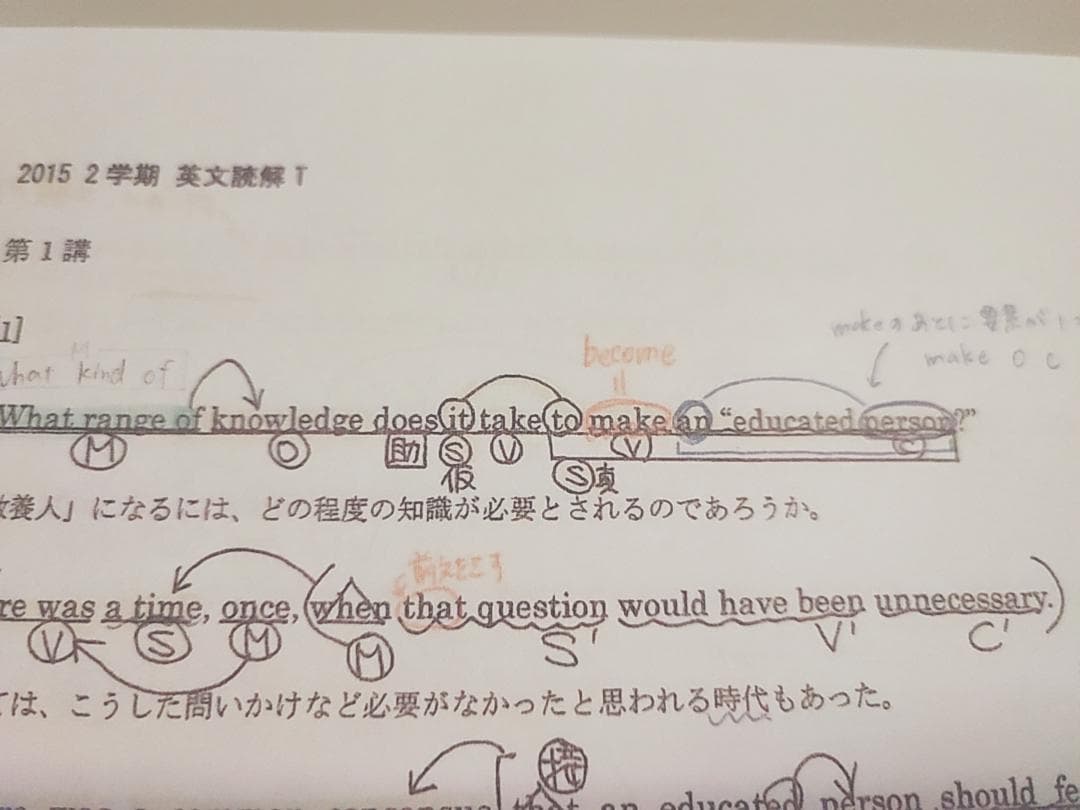 2015 2学期 英文読解T
第1講
1]
become
make O C
what kind of
What range of knowledge does it take to make an “educated person?”
M O 助 S V V C
仮 S真
教養人」になるには、どの程度の知識が必要とされるのであろうか。
前文をさす
re was a time, once, when that question would have been unnecessary.
V S M M S' V' C'
ては、こうした問いかけなど必要がなかったと思われる時代もあった。
an educated person should fe